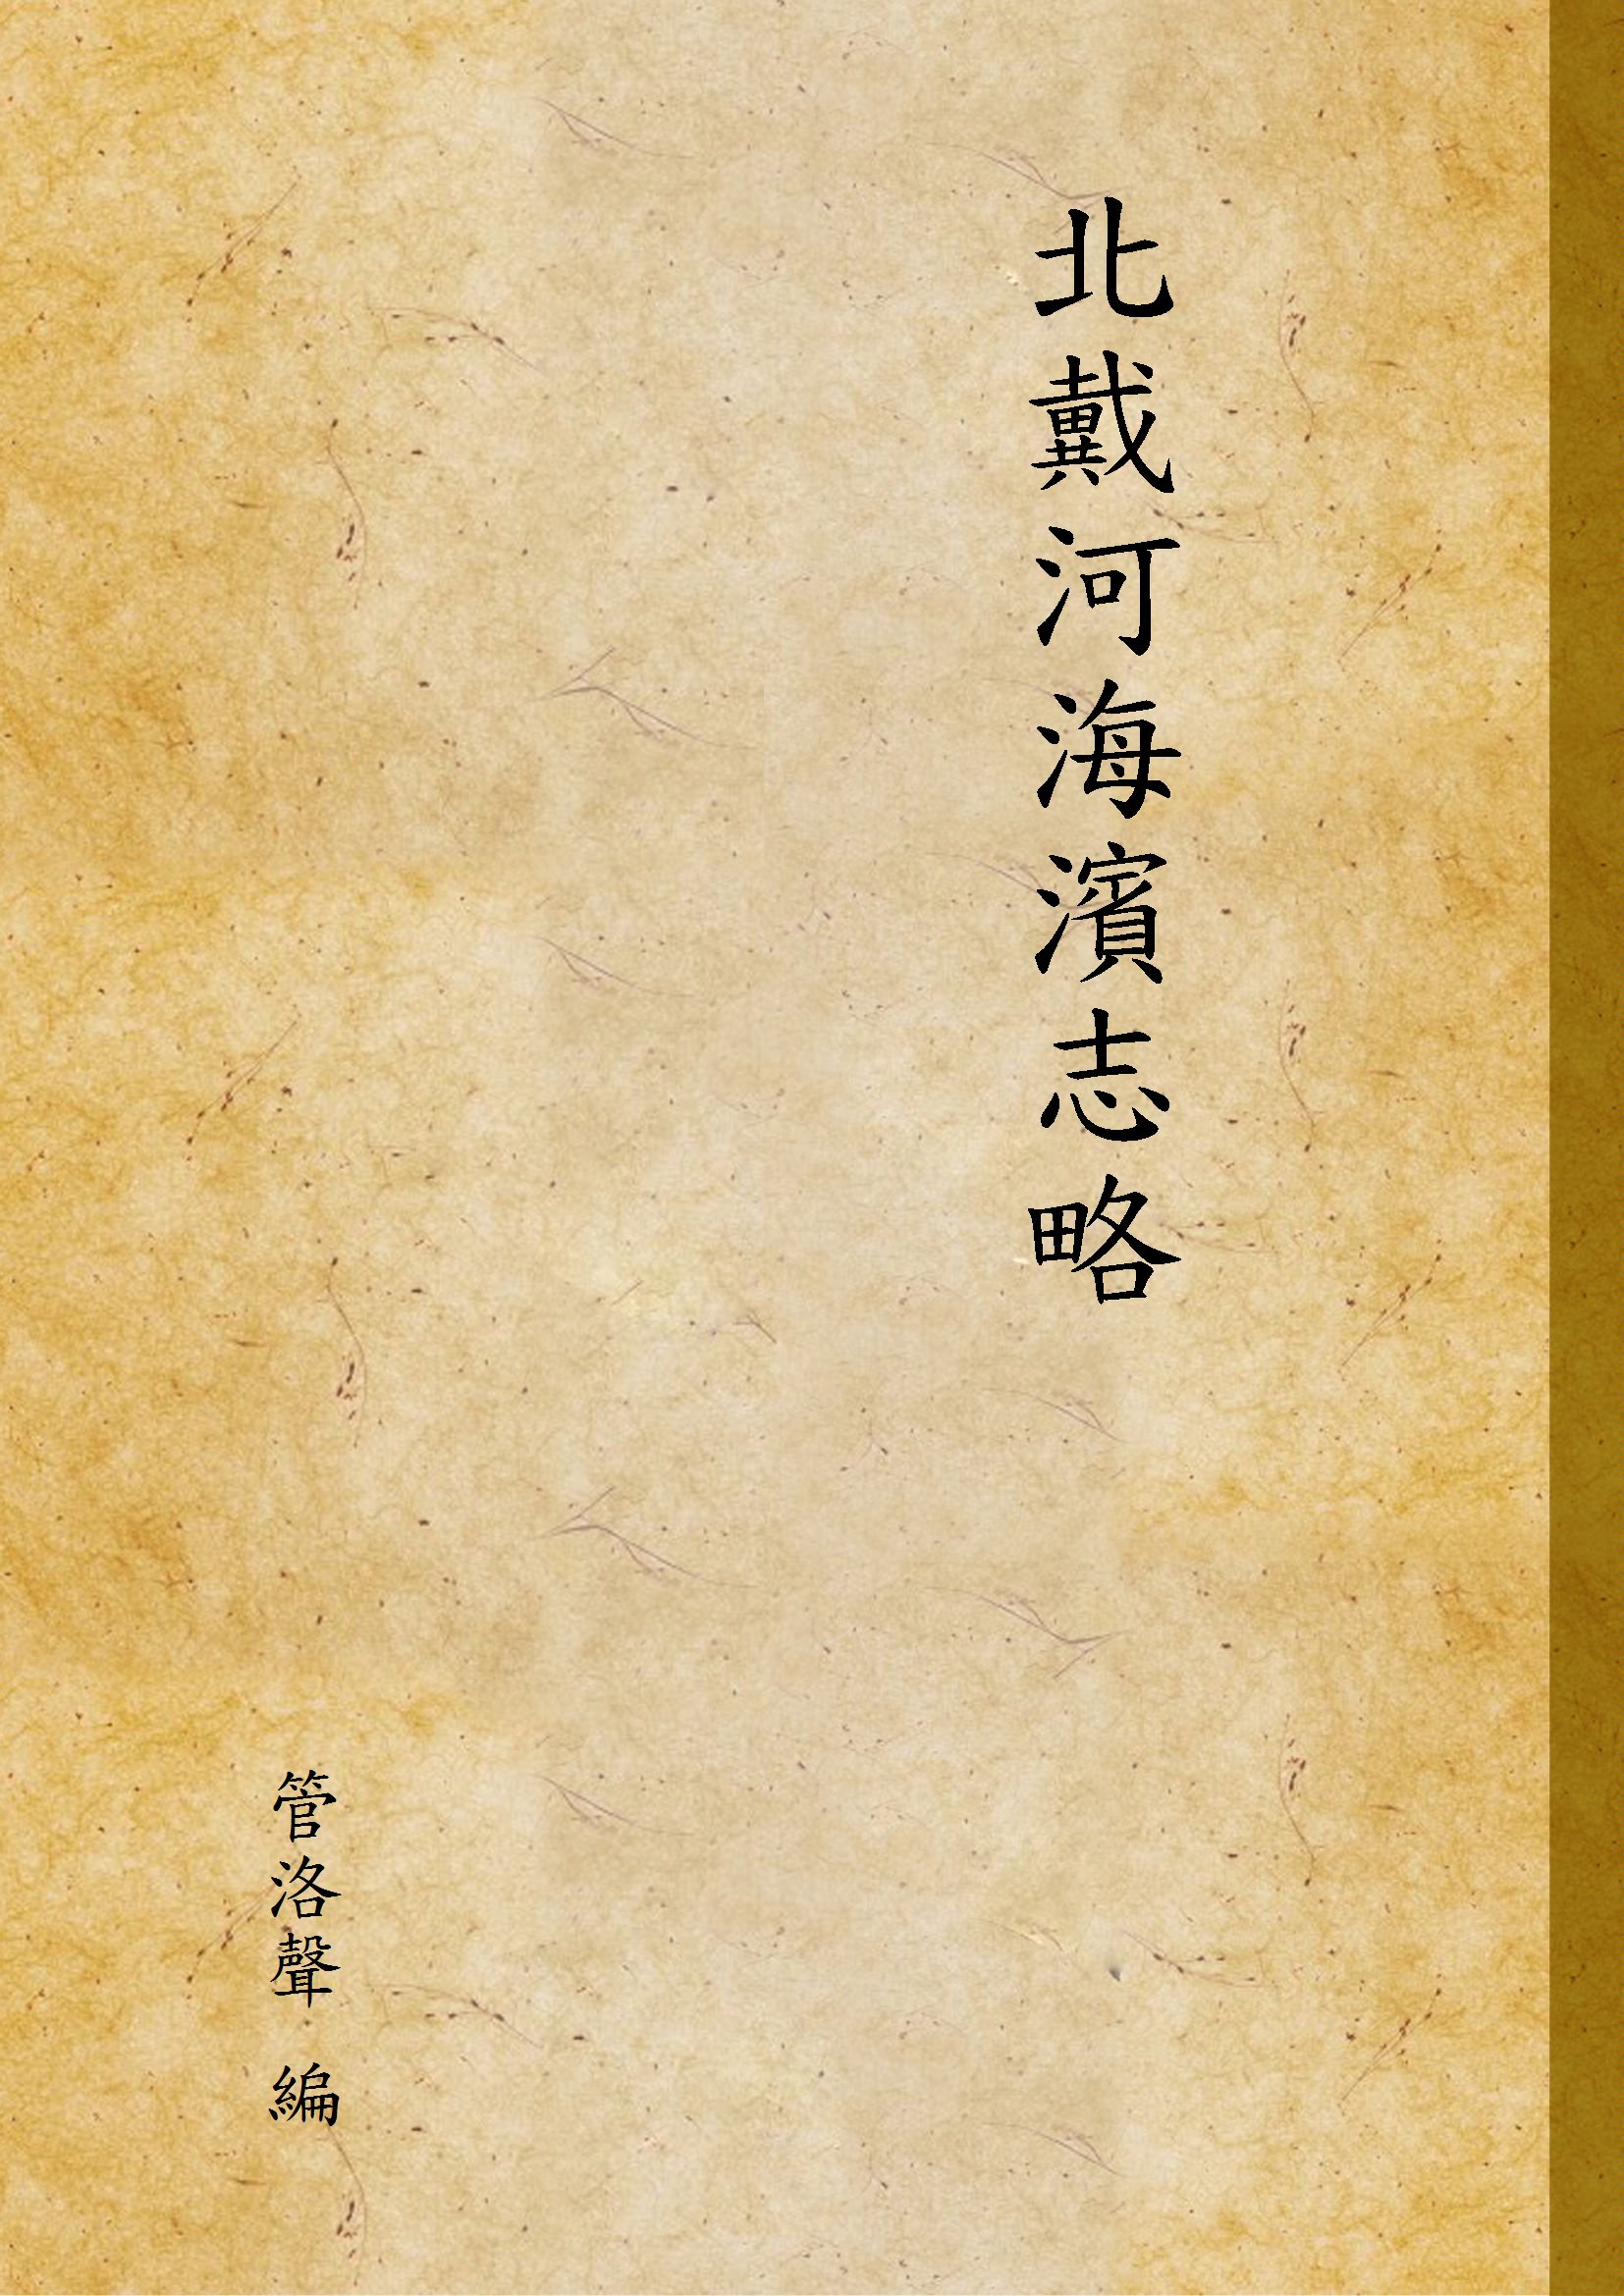 北戴河海濱志略
管洛聲 編